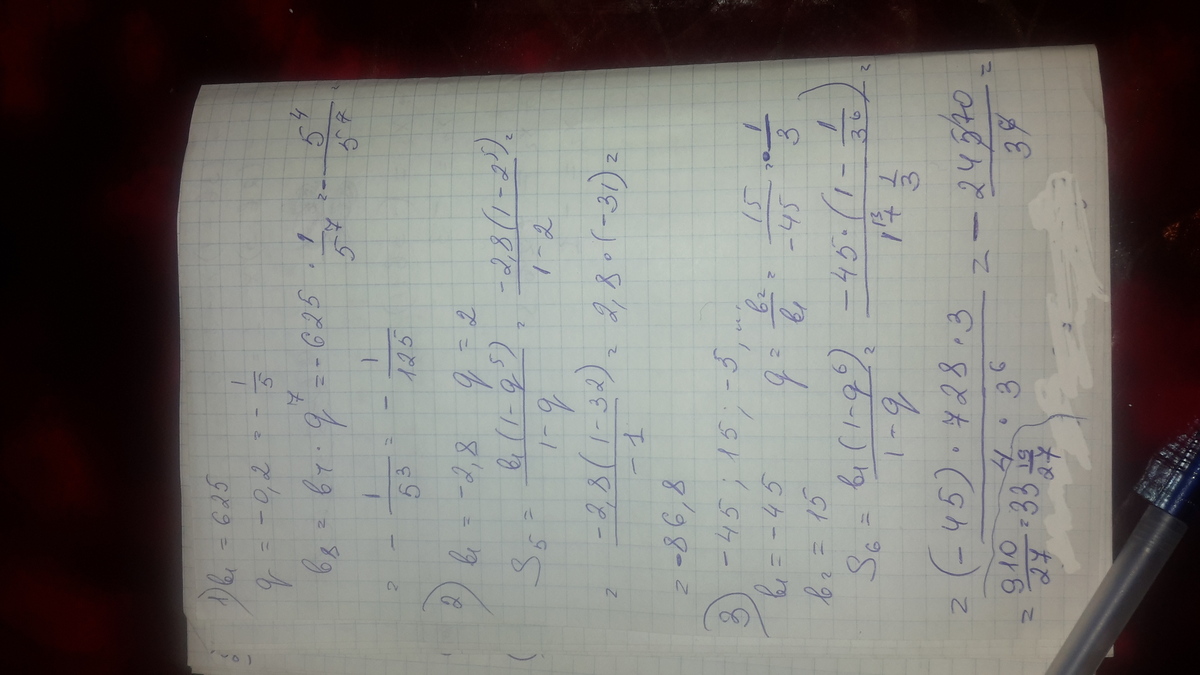 1) b₁ = 625
q = -0,2 = - 1/5
b₈ = b₁ · q⁷ = -625 · 1/5⁷ = - 5⁴/5⁷ =
= - 1/5³ = - 1/125
2) b₁ = -2,8 q = 2
S₅ = b₁(1-q⁵)/1-q = -2,8(1-2⁵)/1-2 =
= -2,8(1-32)/-1 = 2,8·(-31) =
= -86,8
3) -45; 15; -5; ...
b₁ = -45 q = b₂/b₁ = 15/-45 = - 1/3
b₂ = 15
S₆ = b₁(1-q⁶)/1-q = -45·(1- 1/3⁶)/1 1/3 =
= (-45)·728·3/4·3⁶ = - 24570/3⁶ =
= 910/27 = 33 19/27